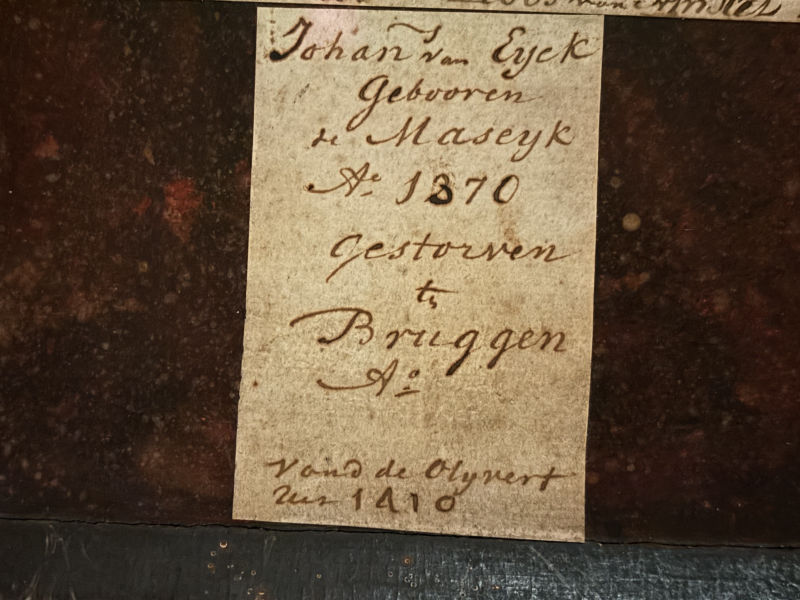 Johanˉs van Eyck
Gebooren
te Maseyk
Aº 1370
gestorven
te
Bruggen
Aº
vond de Olyverf
uit 1410